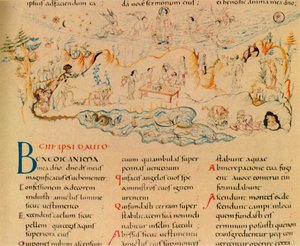 ei benedic anima mea dno
IPSI DAUID
BENEDIC ANIMA
mea dno dne ds meus
magnificatus es uehementer
Confessionem &decorem
induisti amictus lumine
sicut uestimento
Extendens caelum sicut
pellem qui tegis aquis
superiora eius
Qui ponit nubem ascensum
cum qui ambulas super
pennas uentorum
Qui facis angelos tuos sps
& ministros tuos ignem
urentem
Qui fundasti terram super
stabilitatem suam non
nabitur in seculum seculi
Abyssus sicut uestim
stabunt aquae
Ab increpatione tua fugi
ent a uoce tonitrui tui
formidabunt
Ascendunt montes & de
scendunt campi in locum
quem fundasti eis
Terminum posuisti quem
non transgredientur neque con